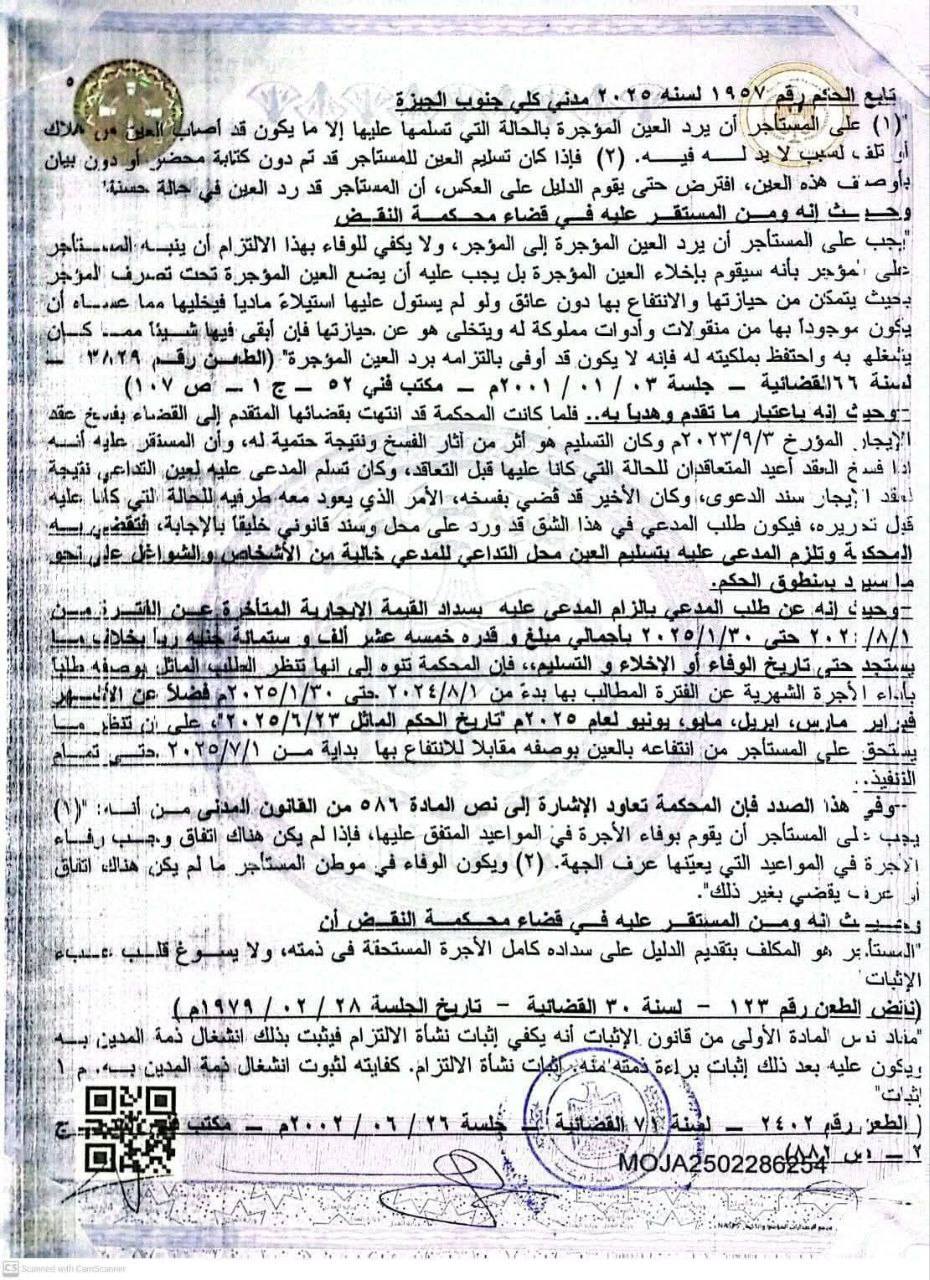 ٥
تابع الحكم رقم ١٩٥٧ لسنه ٢٠٢٥ مدني كلي جنوب الجيزة
"(١) على المستأجر أن يرد العين المؤجرة بالحالة التي تسلمها عليها إلا ما يكون قد أصاب العين من هلاك
أو تلف لسبب لا يد له فيه. (٢) فإذا كان تسليم العين للمستأجر قد تم دون كتابة محضر أو دون بيان
بأوصاف هذه العين، افترض حتى يقوم الدليل على العكس، أن المستأجر قد رد العين في حالة حسنة"
وحيث إنه ومن المستقر عليه في قضاء محكمة النقض
"يجب على المستأجر أن يرد العين المؤجرة إلى المؤجر، ولا يكفي للوفاء بهذا الالتزام أن ينبه المستأجر
على المؤجر بأنه سيقوم بإخلاء العين المؤجرة بل يجب عليه أن يضع العين المؤجرة تحت تصرف المؤجر
بحيث يتمكن من حيازتها والانتفاع بها دون عائق ولو لم يستول عليها استيلاءً ماديا فيخليها مما عساه أن
يكون موجوداً بها من منقولات وأدوات مملوكة له ويتخلى هو عن حيازتها فإن أبقى فيها شيئا مما كان
يشغلها به واحتفظ بملكيته له فإنه لا يكون قد أوفى بالتزامه برد العين المؤجرة" (الطعن رقم ٣٨٢٩ –
لسنة ٦٦القضائية – جلسة ٠٣ / ٠١ / ٢٠٠١م – مكتب فني ٥٢ – ج ١ – ص ١٠٧)
-وحيث إنه باعتبار ما تقدم وهدياً به.. فلما كانت المحكمة قد انتهت بقضائها المتقدم إلى القضاء بفسخ عقد
الإيجار المؤرخ ٢٠٢٣/٩/٣م وكان التسليم هو أثر من آثار الفسخ ونتيجة حتمية له، وأن المستقر عليه أنه
إذا فسخ العقد أعيد المتعاقدان للحالة التي كانا عليها قبل التعاقد، وكان تسلم المدعى عليه لعين التداعي نتيجة
لعقد الإيجار سند الدعوى، وكان الأخير قد قضي بفسخه، الأمر الذي يعود معه طرفيه للحالة التي كانا عليه
قبل تحريره، فيكون طلب المدعي في هذا الشق قد ورد على محل وسند قانوني خليقا بالإجابة، فتقضي به
المحكمة وتلزم المدعى عليه بتسليم العين محل التداعي للمدعي خالية من الأشخاص والشواغل على نحو
ما سيرد بمنطوق الحكم.
-وحيث إنه عن طلب المدعي بالزام المدعى عليه بسداد القيمة الإيجارية المتأخرة عن الفترة من
٨/١/ حتى ٢٠٢٥/١/٣٠ بأجمالي مبلغ و قدره خمسه عشر ألف و ستمائة جنيه بخلاف ما
يستجد حتى تاريخ الوفاء أو الإخلاء و التسليم،، فإن المحكمة تنوه إلى انها تنظر الطلب الماثل بوصفه طلباً
بأداء الأجرة الشهرية عن الفترة المطالب بها بدءً من ٢٠٢٤/٨/١ حتى ٢٠٢٥/١/٣٠م فضلاً عن الأشهر
فبراير مارس، ابريل، مايو، يونيو لعام ٢٠٢٥م "تاريخ الحكم الماثل ٢٠٢٥/٦/٢٣"، على ان تنظر ما
يستحق على المستأجر من انتفاعه بالعين بوصفه مقابلا للانتفاع بها بداية من ٢٠٢٥/٧/١ حتى تمام
التنفيذ.
-وفي هذا الصدد فإن المحكمة تعاود الإشارة إلى نص المادة ٥٨٦ من القانون المدني من أنه: "(١)
يجب على المستأجر أن يقوم بوفاء الأجرة في المواعيد المتفق عليها، فإذا لم يكن هناك اتفاق وجب وفاء
الأجرة في المواعيد التي يعيّنها عرف الجهة. (٢) ويكون الوفاء في موطن المستأجر ما لم يكن هناك اتفاق
أو عرف يقضي بغير ذلك".
وحيث إنه ومن المستقر عليه في قضاء محكمة النقض أن
"المستأجر هو المكلف بتقديم الدليل على سداده كامل الأجرة المستحقة فى ذمته، ولا يسوغ قلب عبء
الإثبات
(نقض الطعن رقم ١٢٣ – لسنة ٣٠ القضائية – تاريخ الجلسة ٢٨ / ٠٢ / ١٩٧٩م )
"مفاد نص المادة الأولى من قانون الإثبات أنه يكفي إثبات نشأة الالتزام فيثبت بذلك انشغال ذمة المدين به
ويكون عليه بعد ذلك إثبات براءة ذمته منه. إثبات نشأة الالتزام. كفايته لثبوت انشغال ذمة المدين به. م ١
إثبات"
( الطعن رقم ٢٤٠٢ – لسنة ٧١ القضائية – جلسة ٢٦ / ٠٦ / ٢٠٠٢م – مكتب ج
٢ – ص ٨٨٢)
MOJA2502286254
CS Scanned with CamScanner